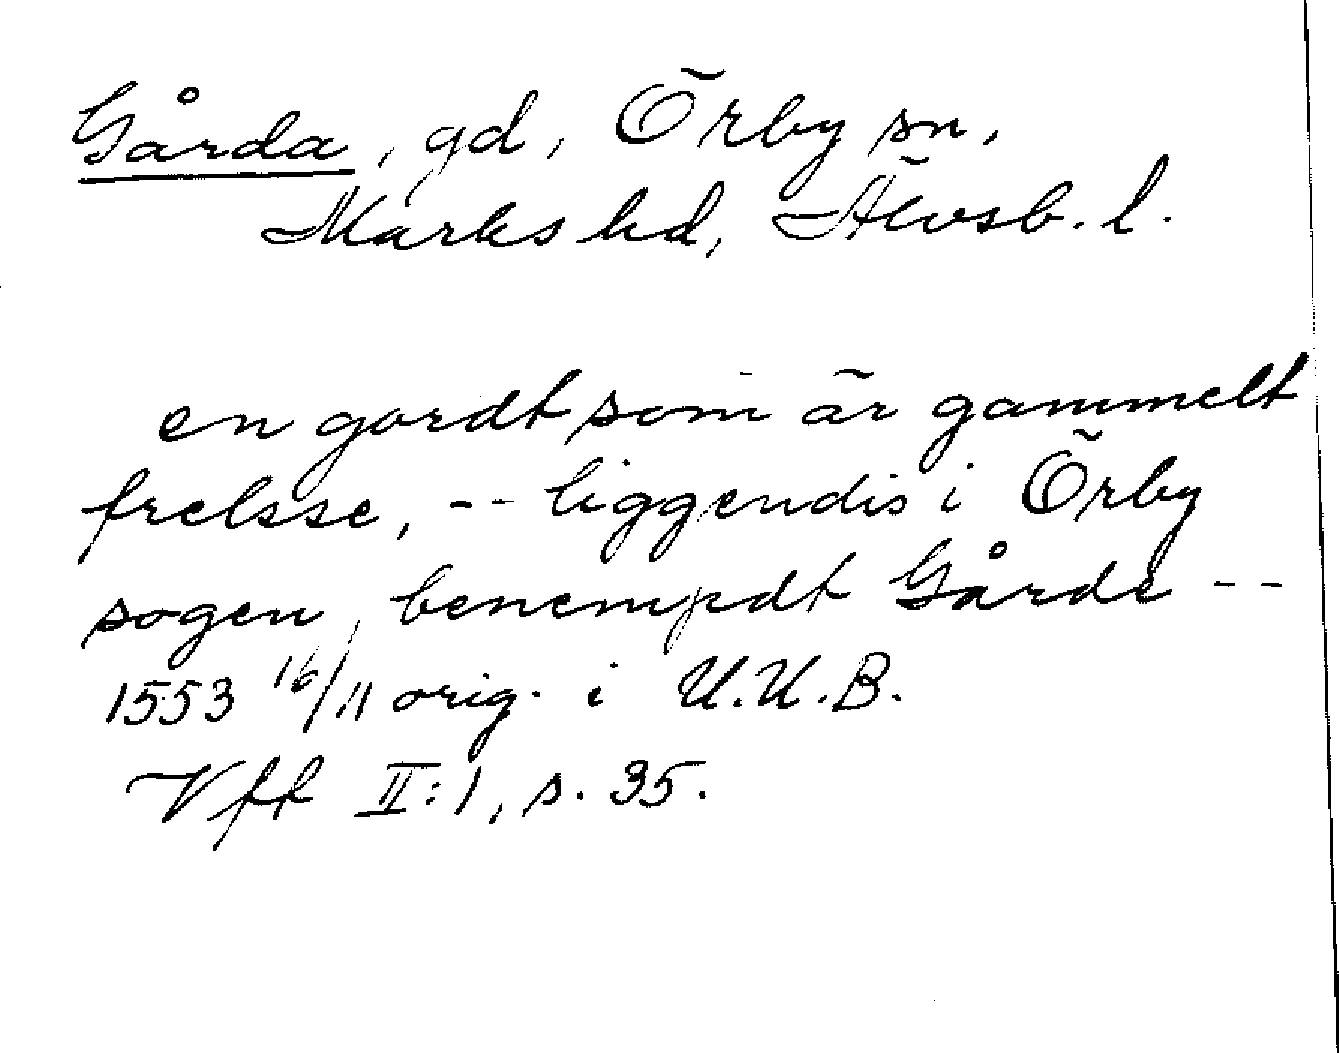 Gårda, gd, Örby sn,
Marks hd, Älvsb. l.
en gordt som är gammelt
frelsse, -- liggendis i Örby
sogen, benempdt Gårde --
1553 16/11 orig. i U.U.B.
Vff II:1, s. 35.